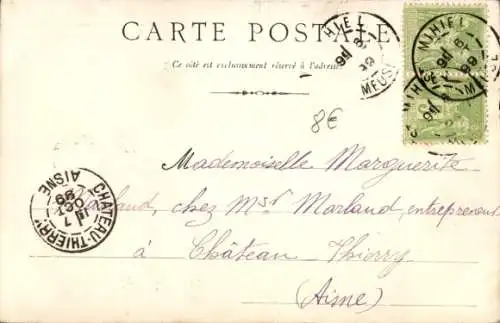 CARTE POSTALE
Ce côté est exclusivement réservé à l'adresse
MIHIEL
MEUSE
99
8€
Mademoiselle Marguerite
Marland, chez Msr Marland, entrepreneur
à Château Thierry
(Aisne)
CHÂTEAU-THIERRY
AISNE
OCT
99